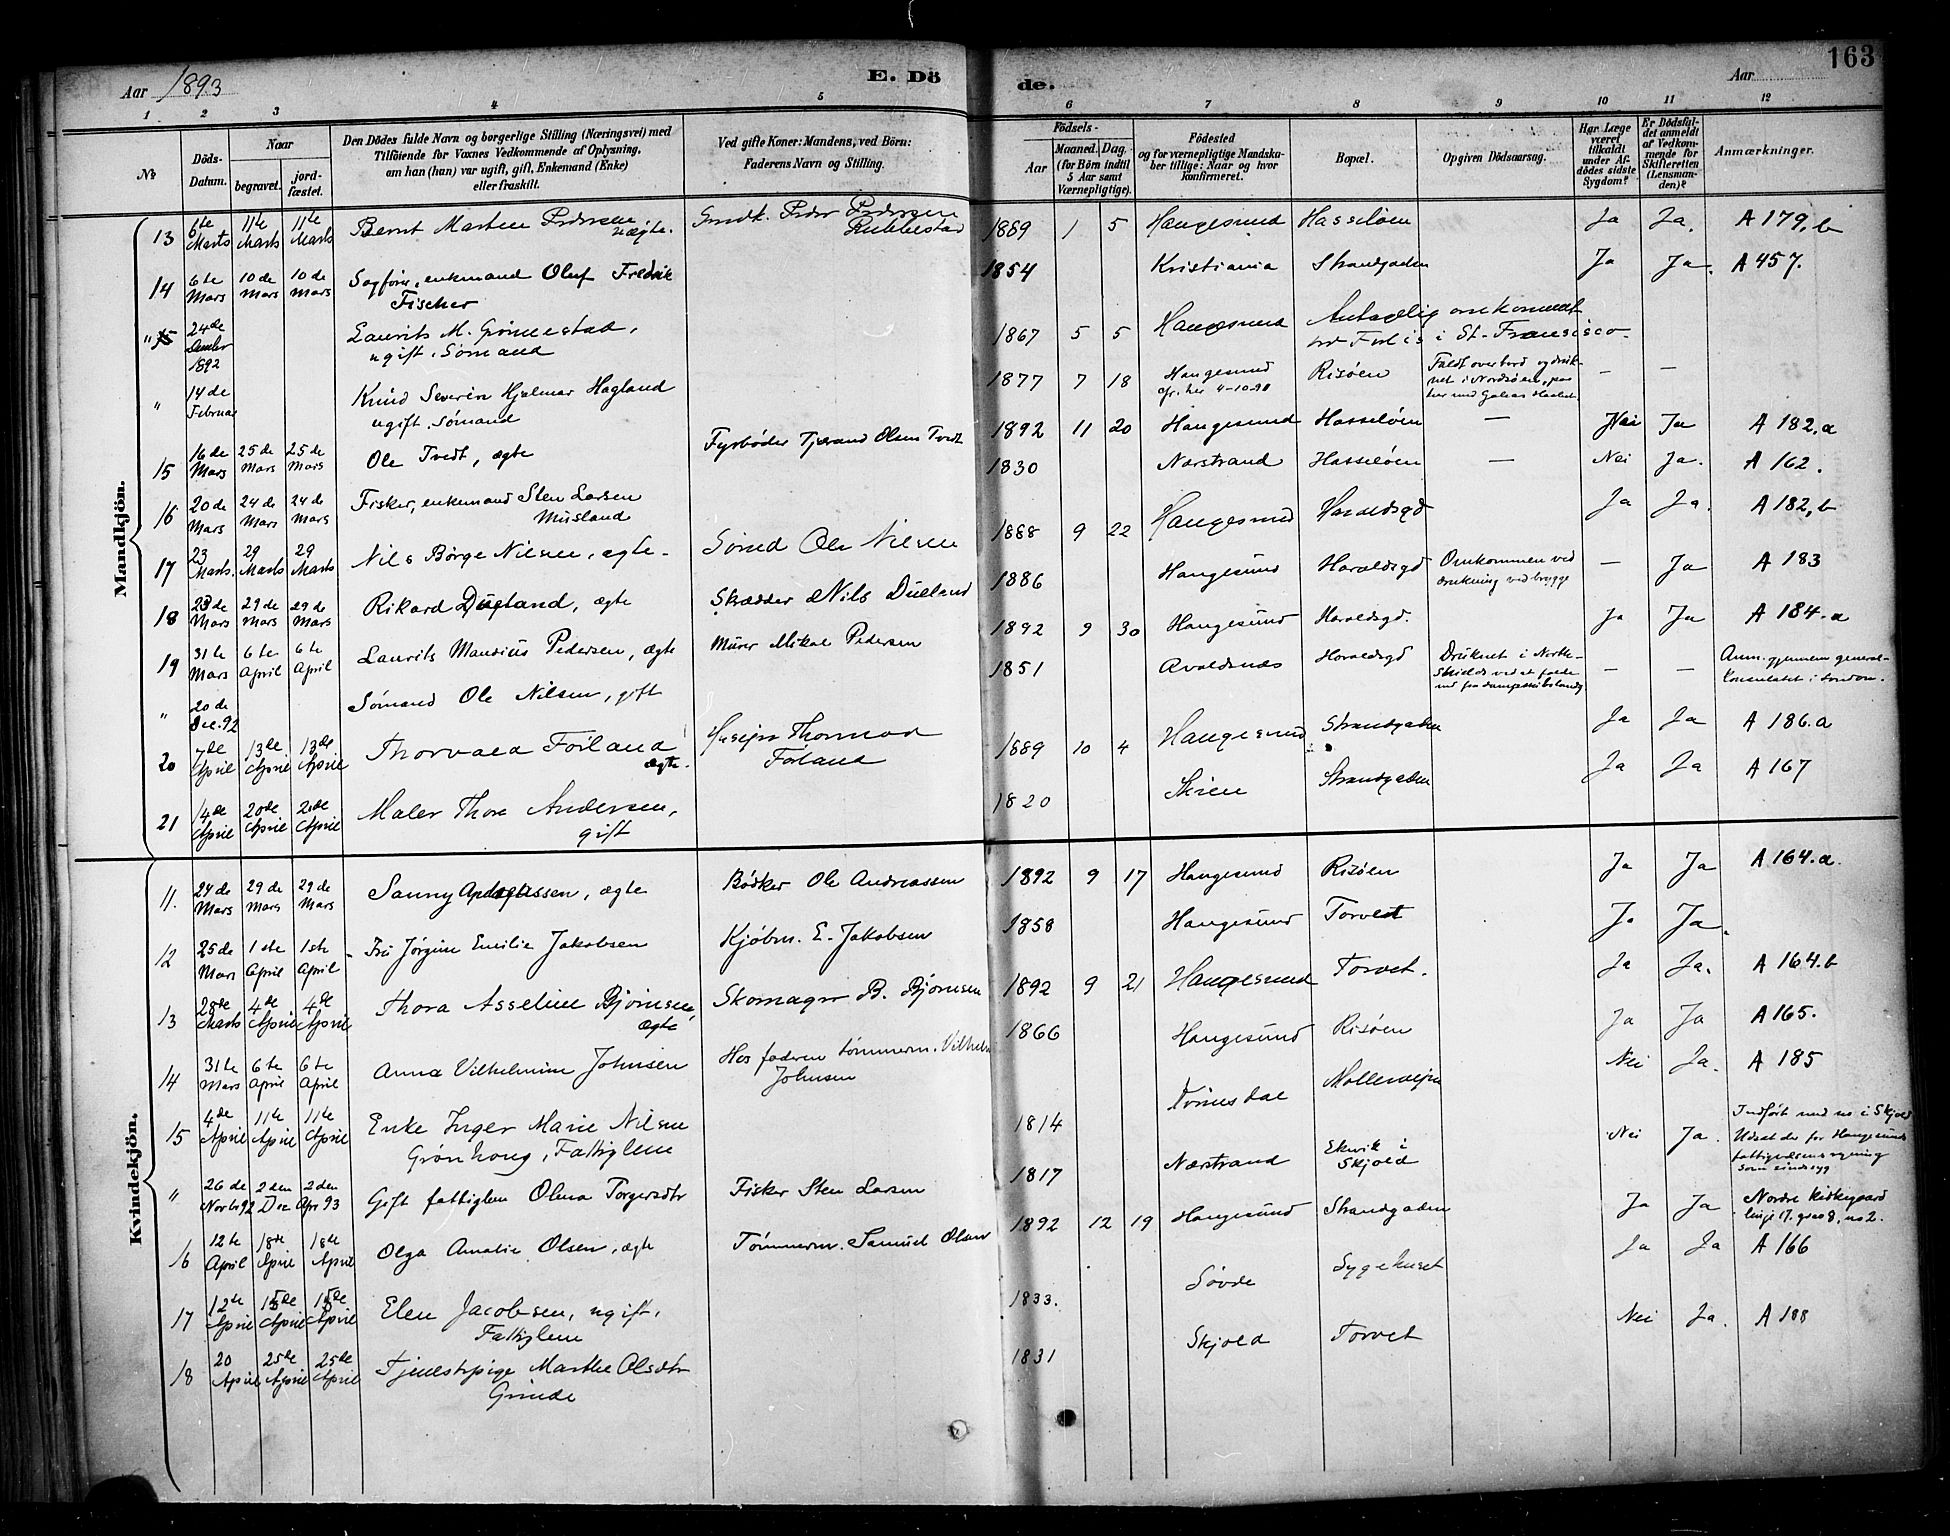 Aar 1893
E. Dö
de.
Aar
163
1 2 3 4 5 6 7 8 9 10 11 12
No
Döds-Datum.
Naar
begravet.
jordfæstet.
Den Dödes fulde Navn og borgerlige Stilling (Næringsvei) med
Tilföiende for Voxnes Vedkommende af Oplysning,
om han (hun) var ugift, gift, Enkemand (Enke)
eller fraskilt.
Ved gifte Koner: Mandens, ved Börn:
Faderens Navn og Stilling.
Födsels-
Aar
Maaned. Dag.
(for Börn indtil
5 Aar samt
Værnepligtige).
Födested
og for værnepligtige Mandska-
ber tillige: Naar og hvor
konfirmeret.
Bopæl.
Opgiven Dödsaarsag.
Har Læge
været
tilkaldt
under Af-
dödes sidste
Sygdom?
Er Dödsfal-
det anmeldt
af Vedkom-
mende for
Skifteretten
(Lensman-
den)?
Anmærkninger.
Mandkjön.
13 6te Marts 11te Marts 11te Marts Bernt Martin Pedersen, uægte. Gaardk. Peder Pedersen Rubbestad 1889 1 5 Haugesund Hasseløen Ja Ja. A 179,b
14 6te Mars 10de Mars 10de Mars Sagfører, enkemand Oluf Fredrik Fischer 1854 Kristiania Strandgaden Ja Ja. A 457.
" 15 24de Decbr 1892 Laurits M. Grønnestad, ugift, Sømand 1867 5 5 Haugesund Antagelig omkommet ved Forlis i St. Francisco
" 14de Februar Knud Severin Hjalmar Hagland ugift, Sømand 1877 7 18 Haugesund Risøen Faldt overbord og druknet i Nordsøen — —
15 16de Mars 25de Mars 25de Mars Ole Tvedt, ægte Fyrbøder Tjerand Olsen Tvedt 1892 11 20 Haugesund Hasseløen — Nei Ja A 182,a
16 20de Mars 24de Mars 24de Mars Fisker, enkemand Sten Larsen Musland 1830 Nærstrand Hasseløen — Nei Ja. A 162.
17 23 Marts. 29 Marts 29 Marts Nils Børge Nilsen, ægte. Sømd Ole Nilsen 1888 9 22 Haugesund Haraldsgd Ja Ja. A 182,b
18 23de Mars 29de Mars 29de Mars Rikard Dueland, ægte Skrædder Nils Dueland 1886 Haugesund Haraldsgd Omkommen ved drukning ved brygge — Ja A 183
19 31te Mars 6te April 6te April Laurits Maudius Pedersen, ægte Murer Mikal Pedersen 1892 9 30 Haugesund Haraldsgd. Ja Ja A 184.a
" 20de Dec. 92 Sømand Ole Nilsen, gift 1851 Avaldsnes Haraldsgd Druknet i North-Shields ved at falde ned fra dampskibslandg — — Anm. gjennem general-konsulatet i London.
20 7de April 13de April 13de April Thorvald Førland ægte. Husejer Thormod Førland 1889 10 4 Haugesund Strandgaden Ja Ja A 186.a
21 14de April 20de April 20de April Maler Thore Andersen, gift 1820 Skien Strandgaden Ja Ja A 167
Kvindekjön.
11. 24de Mars 29de Mars 29de Mars Sanny Andreassen, ægte Bødker Ole Andreassen 1892 9 17 Haugesund Risøen Ja Ja A 164.a.
12 25de Mars 1ste April 1ste April Fru Jørgine Emilie Jakobsen Kjøbm. E. Jakobsen 1858 Haugesund Torvet Ja Ja.
13 28de Marts 4de April 4de April Thora Asseline Bjørnsen, ægte Skomager B. Bjørnsen 1892 9 21 Haugesund Torvet. Ja Ja. A 164.b
14 31te Mars 6te April 6te April Anna Vilhelmine Johnsen Hos faderen tømmerm. Vilhelm Johnsen 1866 Haugesund Risøen Ja Ja A 165.
15 4de April 11te April 11te April Enke Inger Marie Nilsen Grønhoug, Fattiglem 1814 Møllervejen Nei Ja. A 185
" 26de Novb 92 2den Dec 2den Apr 93 Gift fattiglem Olina Torgersdtr Fisker Sten Larsen 1817 Nærstrand Ekvik i Skjold Nei Ja. Indført med no i Skjold Udsat der for Haugesunds fattigvæsens regning som sindssyg
16 12te April 18de April 18de April Olga Amalie Olsen, ægte Tømmerm. Samuel Olsen 1892 12 19 Haugesund Strandgaden Ja Ja Nordre kirkegaard linje 17. grav 8, no 2.
17 12te April 15de April 15de April Elen Jacobsen, ugift, Fattiglem 1833. Søvde Sygehuset Ja Ja A 166
18 20 April 25de April 25de April Tjenestepige Marthe Olsdtr Grinde 1831 Skjold Torvet Nei Ja. A 188